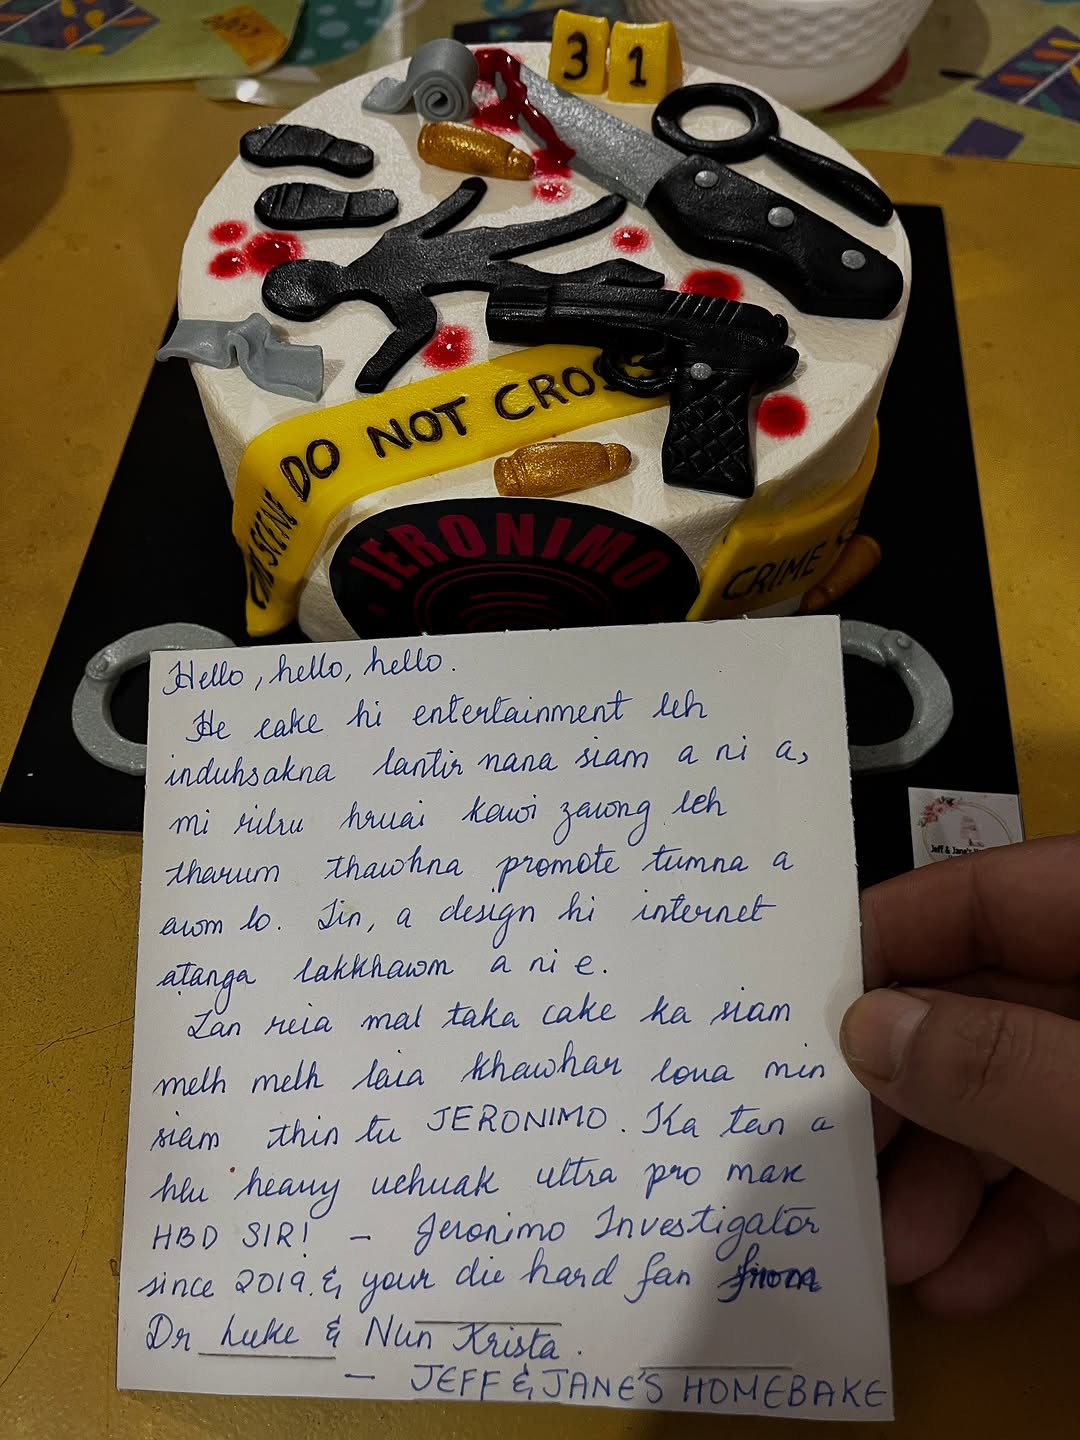 31
DO NOT CROSS
JERONIMO
CRIME
Hello, hello, hello.
He cake hi entertainment leh
induhsakna lantir nana siam a ni a,
mi rilru hruai kawi zawng leh
tharum thawhna promote tumna a
awm lo. Tin, a design hi internet
aṭanga lakkhawm a ni e.
Zan reia mal taka cake ka siam
melh melh laia khawhar lova min
siam thin tu JERONIMO. Ka tan a
hlu heavy uchuak ultra pro max
HBD SIR! - Jeronimo Investigator
since 2019 & your die hard fan
Dr Luke & Nun Krista.
- JEFF & JANE'S HOMEBAKE